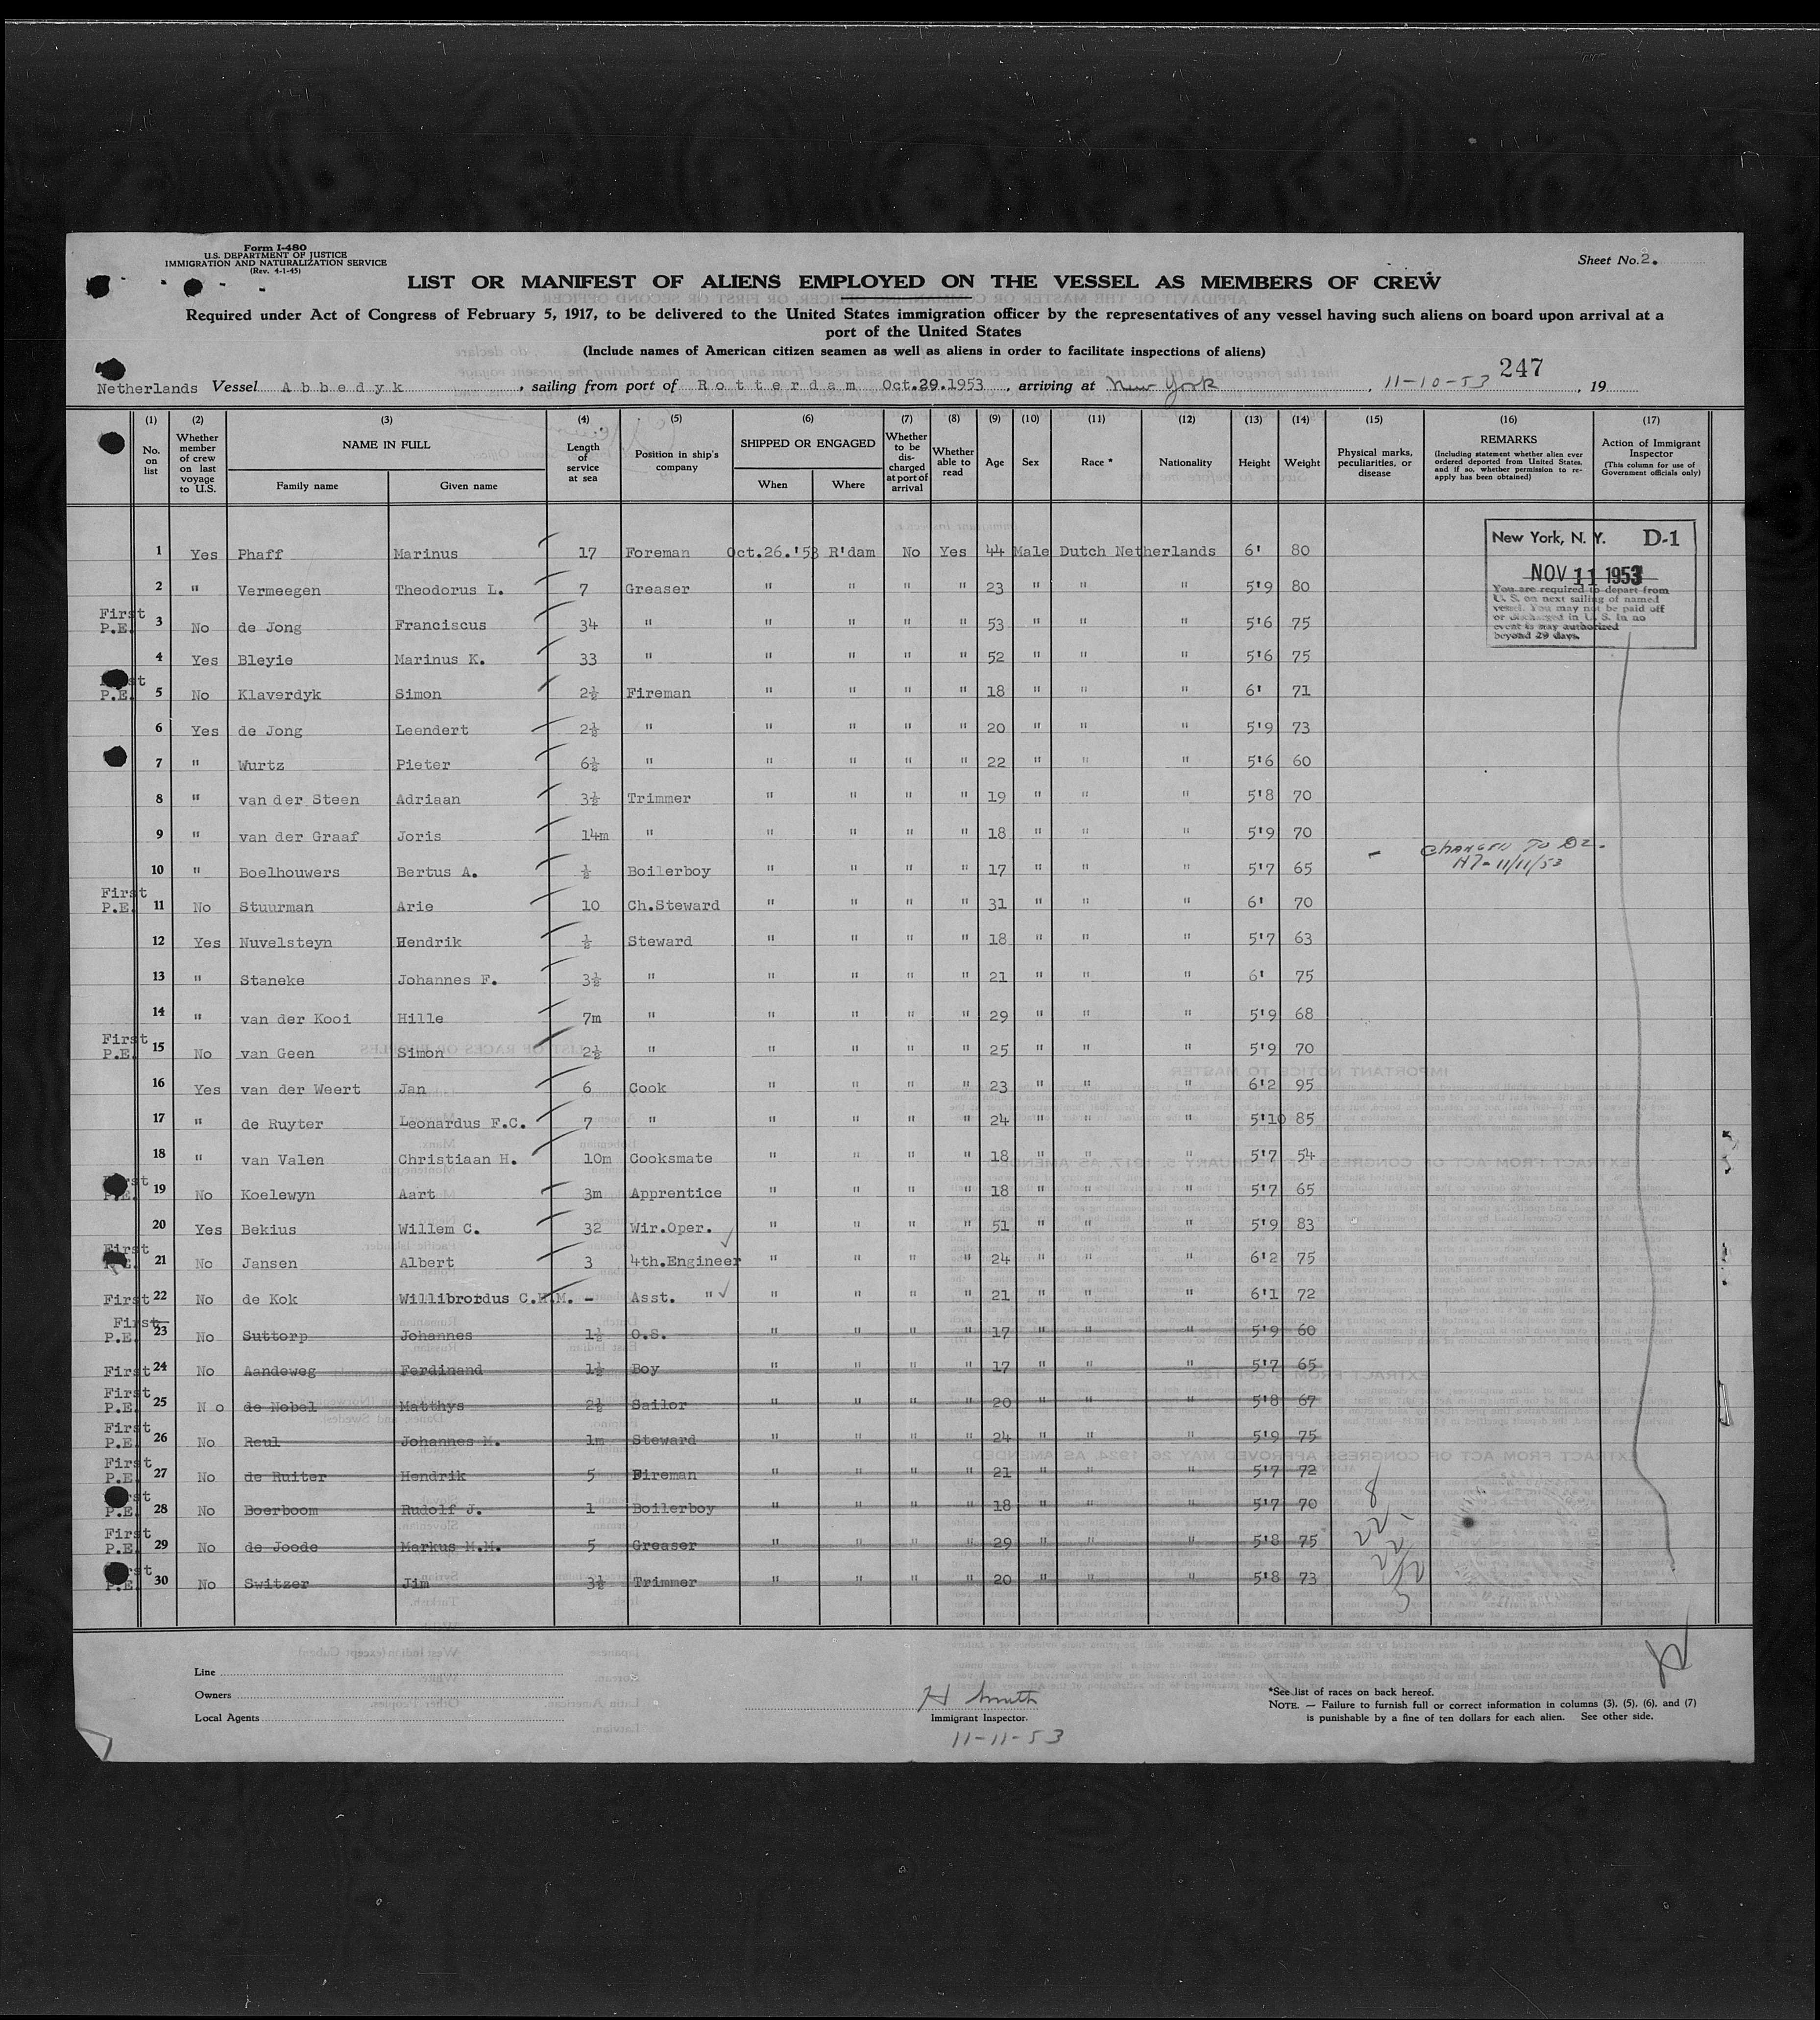 Form I-480
U.S. DEPARTMENT OF JUSTICE
IMMIGRATION AND NATURALIZATION SERVICE
(Rev. 4-1-45)
Sheet No. 2.
LIST OR MANIFEST OF ALIENS EMPLOYED ON THE VESSEL AS MEMBERS OF CREW
Required under Act of Congress of February 5, 1917, to be delivered to the United States immigration officer by the representatives of any vessel having such aliens on board upon arrival at a
port of the United States
(Include names of American citizen seamen as well as aliens in order to facilitate inspections of aliens)
247
Netherlands Vessel Abbedyk, sailing from port of Rotterdam Oct.29.1953, arriving at New York, 11-10-53, 19
(1) (2) (3) (4) (5) (6) (7) (8) (9) (10) (11) (12) (13) (14) (15) (16) (17)
No. on list
Whether member of crew on last voyage to U.S.
NAME IN FULL
Family name Given name
Length of service at sea
Position in ship's company
SHIPPED OR ENGAGED
When Where
Whether to be discharged at port of arrival
Whether able to read
Age Sex Race * Nationality Height Weight
Physical marks, peculiarities, or disease
REMARKS
(Including statement whether alien ever ordered deported from United States, and if so, whether permission to reapply has been obtained)
Action of Immigrant Inspector
(This column for use of Government officials only)
New York, N. Y. D-1
NOV 11 1953
You are required to depart from
U. S. on next sailing of named
vessel. You may not be paid off
or discharged in U. S. In no
event is stay authorized
beyond 29 days.
1 Yes Phaff Marinus 17 Foreman Oct.26.'53 R'dam No Yes 44 Male Dutch Netherlands 6' 80
2 " Vermeegen Theodorus L. 7 Greaser " " " " 23 " " " 5'9 80
First P.E. 3 No de Jong Franciscus 34 " " " " " 53 " " " 5'6 75
4 Yes Bleyie Marinus K. 33 " " " " " 52 " " " 5'6 75
P.E. 5 No Klaverdyk Simon 2½ Fireman " " " " 18 " " " 6' 71
6 Yes de Jong Leendert 2½ " " " " " 20 " " " 5'9 73
7 " Wurtz Pieter 6½ " " " " " 22 " " " 5'6 60
8 " van der Steen Adriaan 3½ Trimmer " " " " 19 " " " 5'8 70
9 " van der Graaf Joris 14m " " " " " 18 " " " 5'9 70
CHANGED TO D2.
10 " Boelhouwers Bertus A. ½ Boilerboy " " " " 17 " " " 5'7 65 - 11/11/53
First P.E. 11 No Stuurman Arie 10 Ch.Steward " " " " 31 " " " 6' 70
12 Yes Nuvelsteyn Hendrik ½ Steward " " " " 18 " " " 5'7 63
13 " Staneke Johannes F. 3½ " " " " " 21 " " " 6' 75
14 " van der Kooi Hille 7m " " " " " 29 " " " 5'9 68
First P.E. 15 No van Geen Simon 2½ " " " " " 25 " " " 5'9 70
16 Yes van der Weert Jan 6 Cook " " " " 23 " " " 6'2 95
17 " de Ruyter Leonardus F.C. 7 " " " " " 24 " " " 5'10 85
18 " van Valen Christiaan H. 10m Cooksmate " " " " 18 " " " 5'7 54
19 No Koelewyn Aart 3m Apprentice " " " " 18 " " " 5'7 65
20 Yes Bekius Willem C. 32 Wir.Oper. " " " " 51 " " " 5'9 83
First 21 No Jansen Albert 3 4th.Engineer " " " " 24 " " " 6'2 75
First 22 No de Kok Willibrordus C.H.M. - Asst. " " " " " 21 " " " 6'1 72
First P.E. 23 No Suttorp Johannes 1½ O.S. " " " " 17 " " " 5'9 60
First 24 No Aandeweg Ferdinand 1½ Boy " " " " 17 " " " 5'7 65
First P.E. 25 No de Nobel Matthys 2½ Sailor " " " " 20 " " " 5'8 67
First P.E. 26 No Reul Johannes M. 1m Steward " " " " 24 " " " 5'9 75
First P.E. 27 No de Ruiter Hendrik 5 Fireman " " " " 21 " " " 5'7 72
P.E. 28 No Boerboom Rudolf J. 1 Boilerboy " " " " 18 " " " 5'7 70
First P.E. 29 No de Joode Markus M.M. 5 Greaser " " " " 29 " " " 5'8 75
30 No Switzer Jim 3½ Trimmer " " " " 20 " " " 5'8 73
Line
Owners
Local Agents
H Smith
Immigrant Inspector.
11-11-53
*See list of races on back hereof.
NOTE. — Failure to furnish full or correct information in columns (3), (5), (6), and (7)
is punishable by a fine of ten dollars for each alien. See other side.